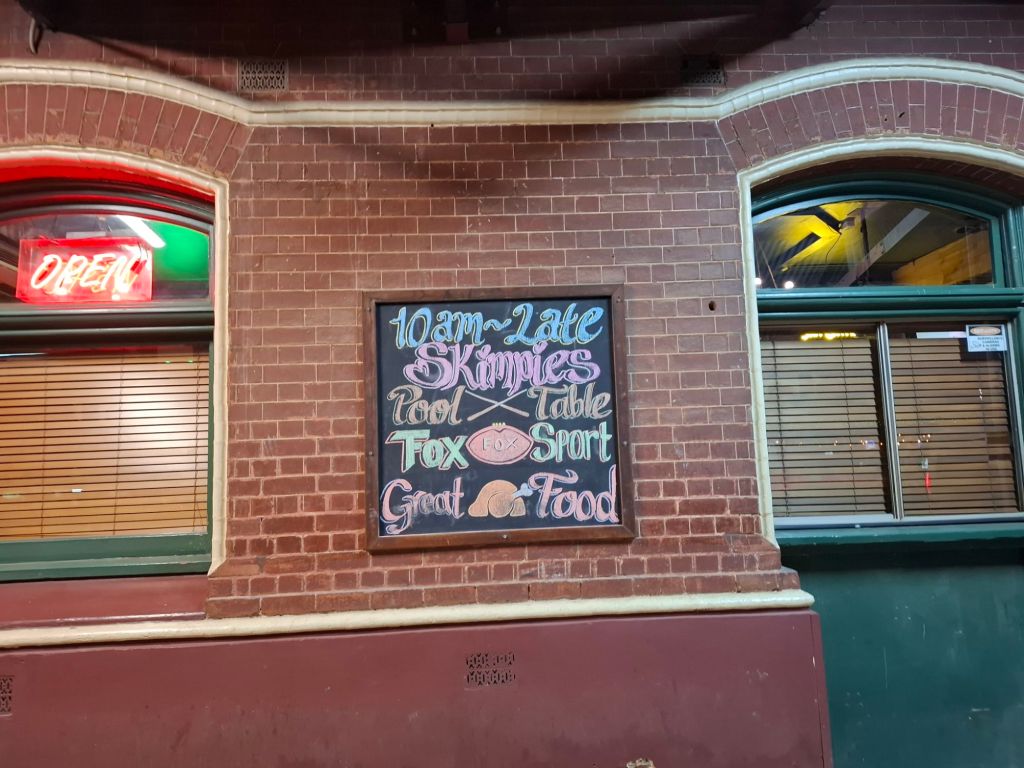 OPEN
10am~Late
Skimpies
Pool Table
FOX FOX Sport
Great Food